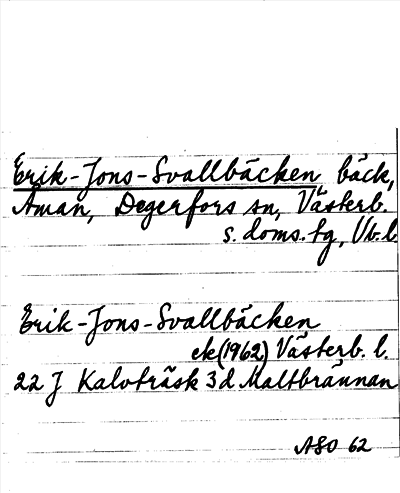 Erik-Jons-Svallbäcken bäck,
Åman, Degerfors sn, Västerb.
s. doms. tg, Vb. l.
Erik-Jons-Svallbäcken
ek (1962) Västerb. l.
22 J Kalvträsk 3d Maltbrännan
ASO 62